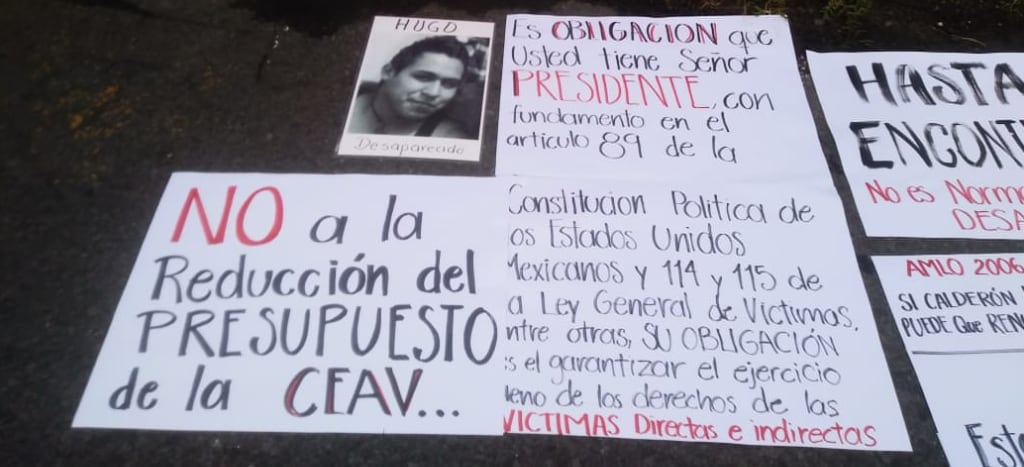 HUGO
Desaparecido
NO a la
Reducción del
PRESUPUESTO
de la CEAV...
Es OBLIGACION que
Usted tiene Señor
PRESIDENTE, con
fundamento en el
articulo 89 de la
Constitucion Politica de
os Estados Unidos
Mexicanos y 114 y 115 de
a Ley General de Victimas,
ntre otras, SU OBLIGACIÓN
s el garantizar el ejercicio
leno de los derechos de las
VICTIMAS Directas e indirectas
HASTA
ENCONT
No es Norm
DESA
AMLO 2006
SI CALDERÓN
PUEDE Que REN
Est